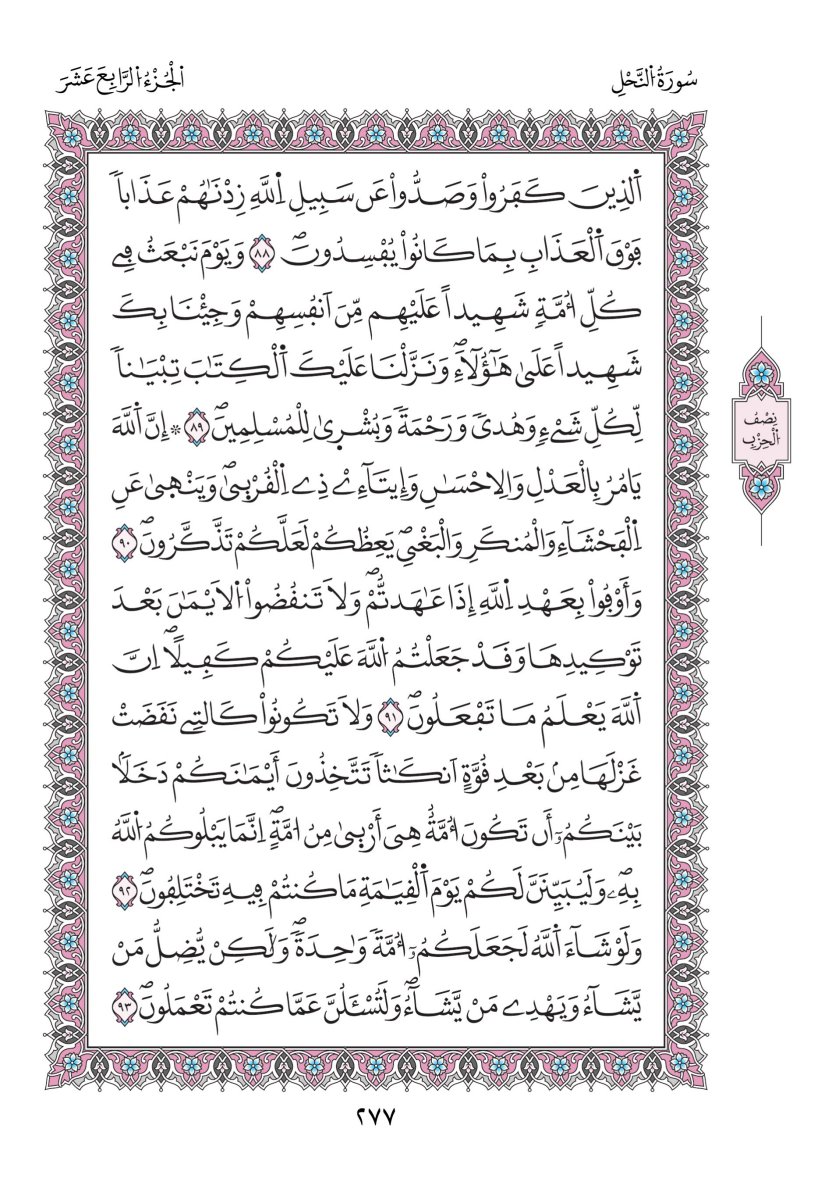 سُورَةُ النَّحْلِ
اَلْجُزْءُ الرَّابِعَ عَشَرَ
اَ۬لذِينَ كَفَرُواْ وَصَدُّواْ عَن سَبِيلِ اِ۬للَّهِ زِدْنَٰهُمْ عَذَاباٗ
فَوْقَ اَ۬لْعَذَابِ بِمَا كَانُواْ يُفْسِدُونَۖ ٨٨ وَيَوْمَ نَبْعَثُ فِے
كُلِّ أُمَّةٖ شَهِيداً عَلَيْهِم مِّنَ اَنفُسِهِمْ وَجِئْنَا بِكَ
شَهِيداً عَلَيٰ هَٰٓؤُلَآءِۖ وَنَزَّلْنَا عَلَيْكَ اَ۬لْكِتَٰبَ تِبْيَٰناٗ
لِّكُلِّ شَےْءٖ وَهُديٗ وَرَحْمَةٗ وَبُشْر۪يٰ لِلْمُسْلِمِينَۖ ٨٩ ۞ إِنَّ اَ۬للَّهَ
يَامُرُ بِالْعَدْلِ وَالِاحْسَٰنِ وَإِيتَآءِےْ ذِے اِ۬لْقُرْب۪يٰۖ وَيَنْه۪يٰ عَنِ
اِ۬لْفَحْشَآءِ وَالْمُنكَرِ وَالْبَغْيِۖ يَعِظُكُمْ لَعَلَّكُمْ تَذَّكَّرُونَۖ ٩٠
وَأَوْفُواْ بِعَهْدِ اِ۬للَّهِ إِذَا عَٰهَدتُّمْۖ وَلَا تَنقُضُواْ اُ۬لَايْمَٰنَ بَعْدَ
تَوْكِيدِهَا وَقَدْ جَعَلْتُمُ اُ۬للَّهَ عَلَيْكُمْ كَفِيلاًۖ اِنَّ
اَ۬للَّهَ يَعْلَمُ مَا تَفْعَلُونَۖ ٩١ وَلَا تَكُونُواْ كَالتِے نَقَضَتْ
غَزْلَهَا مِنۢ بَعْدِ قُوَّةٍ اَنكَٰثاٗ تَتَّخِذُونَ أَيْمَٰنَكُمْ دَخَلاَۢ
بَيْنَكُمُۥٓ أَن تَكُونَ أُمَّةٌ هِيَ أَرْب۪يٰ مِنُ امَّةٍۖ اِنَّمَا يَبْلُوكُمُ اُ۬للَّهُ
بِهِۦۖ وَلَيُبَيِّنَنَّ لَكُمْ يَوْمَ اَ۬لْقِيَٰمَةِ مَا كُنتُمْ فِيهِ تَخْتَلِفُونَۖ ٩٢
وَلَوْ شَآءَ اَ۬للَّهُ لَجَعَلَكُمُۥٓ أُمَّةٗ وَٰحِدَةٗۖ وَلَٰكِنْ يُّضِلُّ مَنْ
يَّشَآءُ وَيَهْدِے مَنْ يَّشَآءُۖ وَلَتُسْـَٔلُنَّ عَمَّا كُنتُمْ تَعْمَلُونَۖ ٩٣
نِصْفُ
الْحِزْبِ
٢٧٧